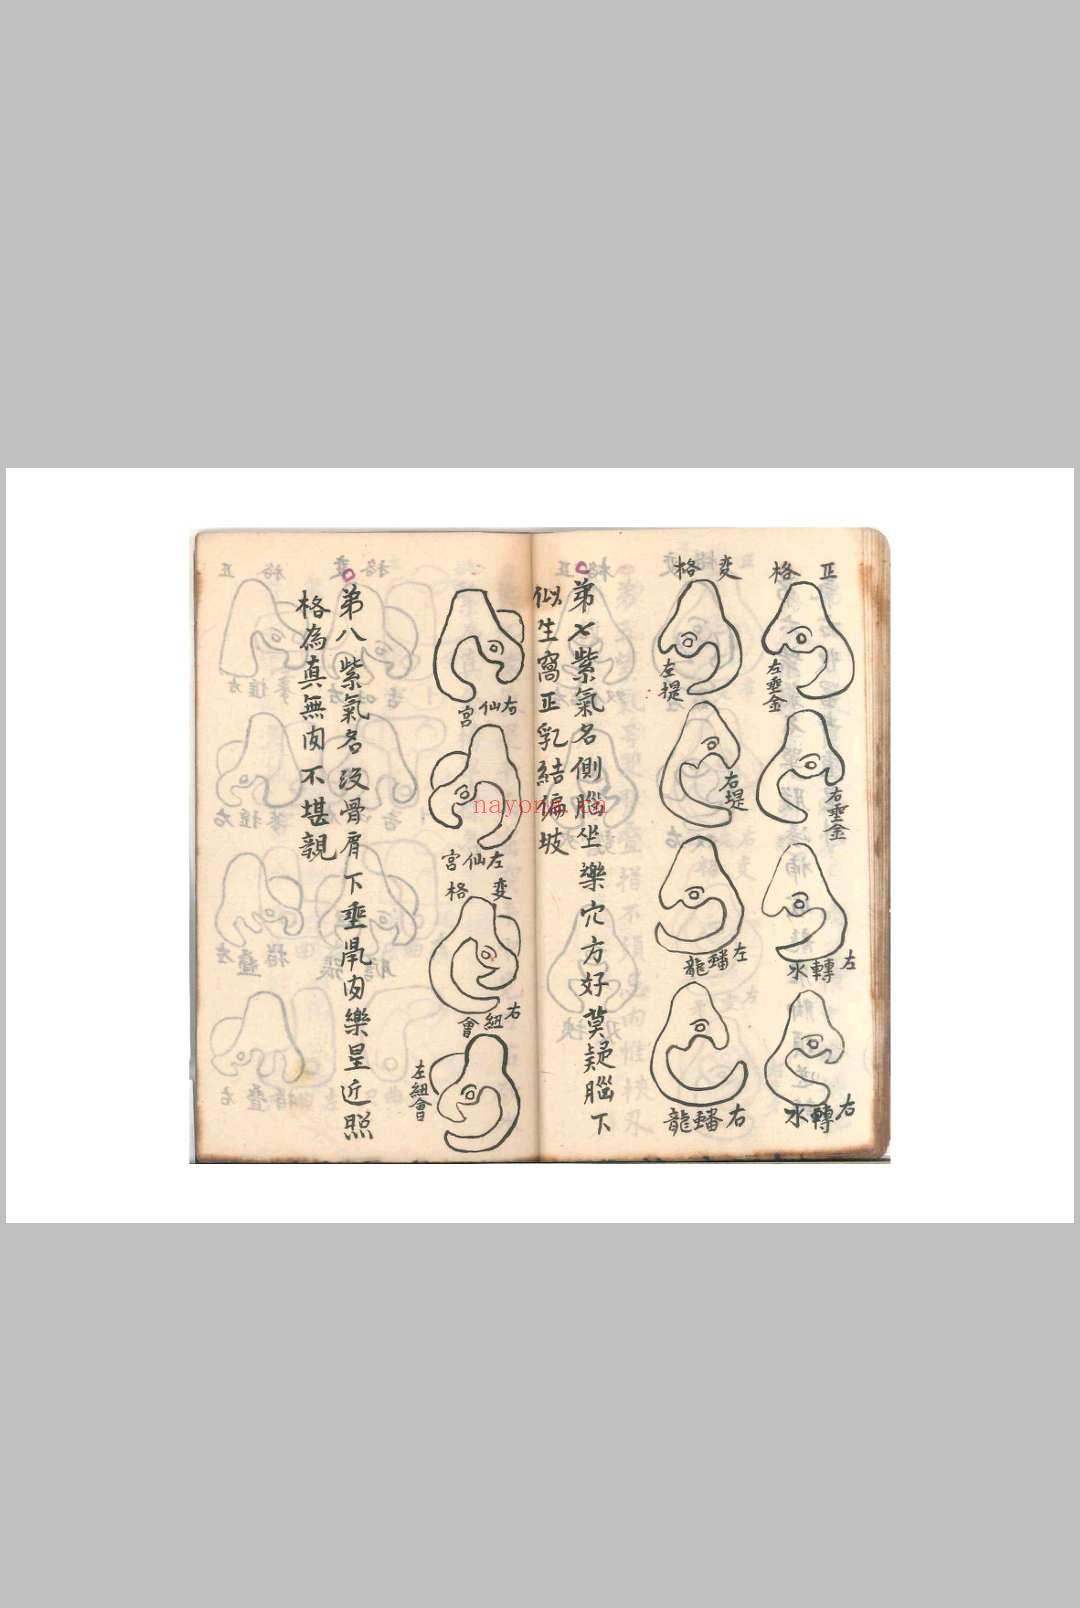 正格
左垂金
右垂金
左轉水
右轉水
变格
左提
右堤
左蟠龍
右蟠龍
弟七紫氣名側腦坐樂穴方好莫疑腦下
似生窩正乳結偏坡
右仙宮
左仙宮
变格
右紐會
左紐會
弟八紫氣名没骨肩下垂
樂星近照
格為真無
不堪親
nayona.cn